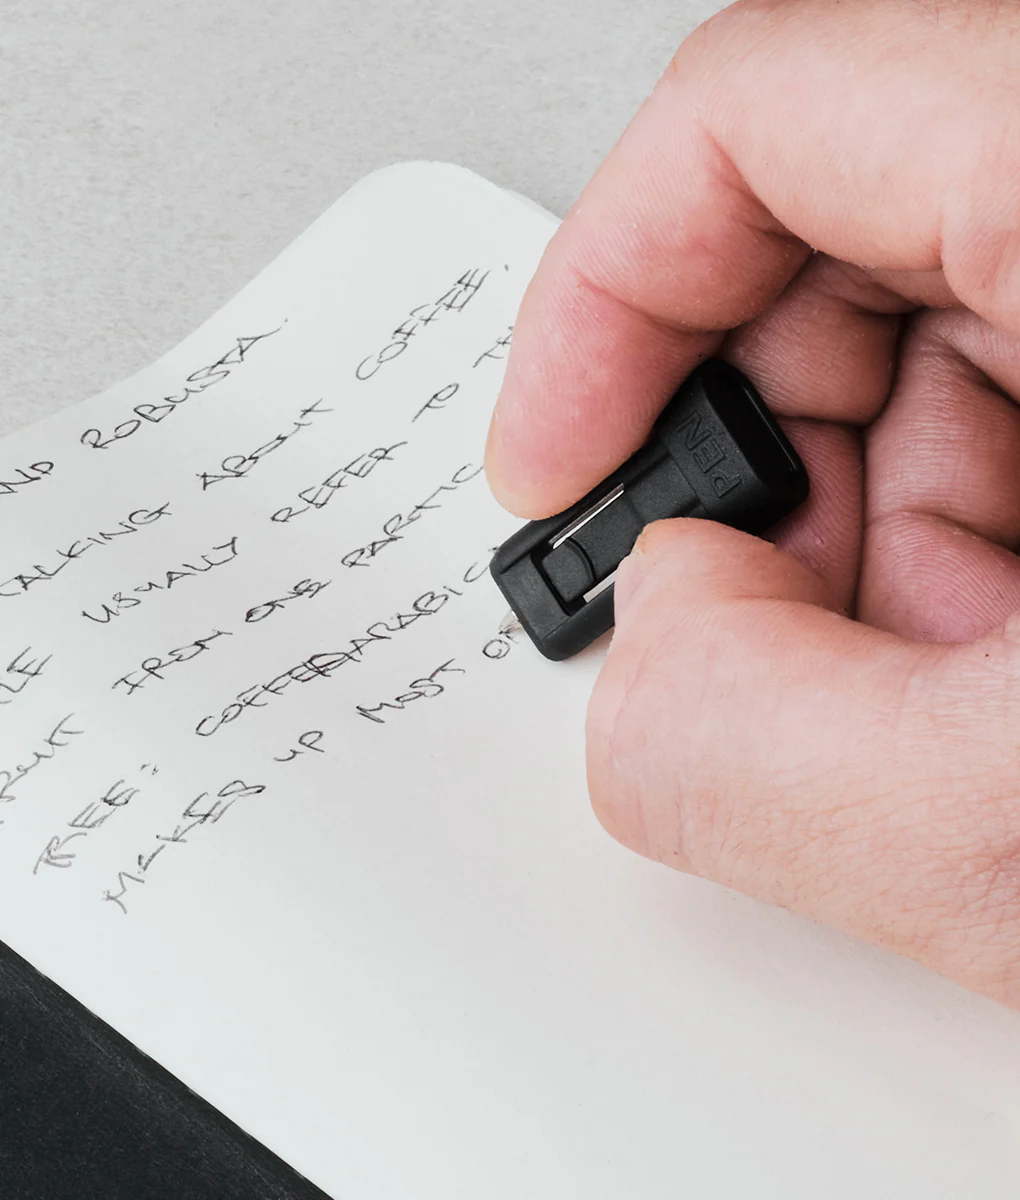 AND ROBUSTA.
TALKING ABOUT COFFEE.
USUALLY REFER TO
FROM ONE PARTIC
TREE: COFFEA ARABIC
MAKES UP MOST OF
PEN